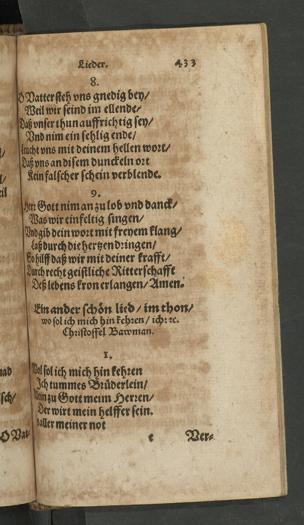 Lieder. 433
8.
O Vatter steh vns gnedig bey/
Weil wir seind im ellende/
Daß vnser thun auffrichtig sey/
Vnd nim ein sehlig ende/
leucht vns mit deinem hellen wort/
Daß vns an disem dunckeln ort
Kein falscher schein verblende.
9.
Herr Gott nim an zu lob vnd danck/
Was wir einfeltig singen/
Vnd gib dein wort mit freyem klang/
Laß durch die hertzen dringen/
So hilff daß wir mit deiner krafft/
Durch recht geistliche Ritterschafft
Deß lebens kron erlangen/ Amen.
Ein ander schön lied/ im thon/
wo sol ich mich hin kehren/ ich ꝛc.
Christoffel Bawman.
1.
Wol sol ich mich hin kehren
Ich tummes Brüderlein/
zu Gott meim Herren/
Der wirt mein helffer sein.
aller meiner not
e Ver-
O Vat-